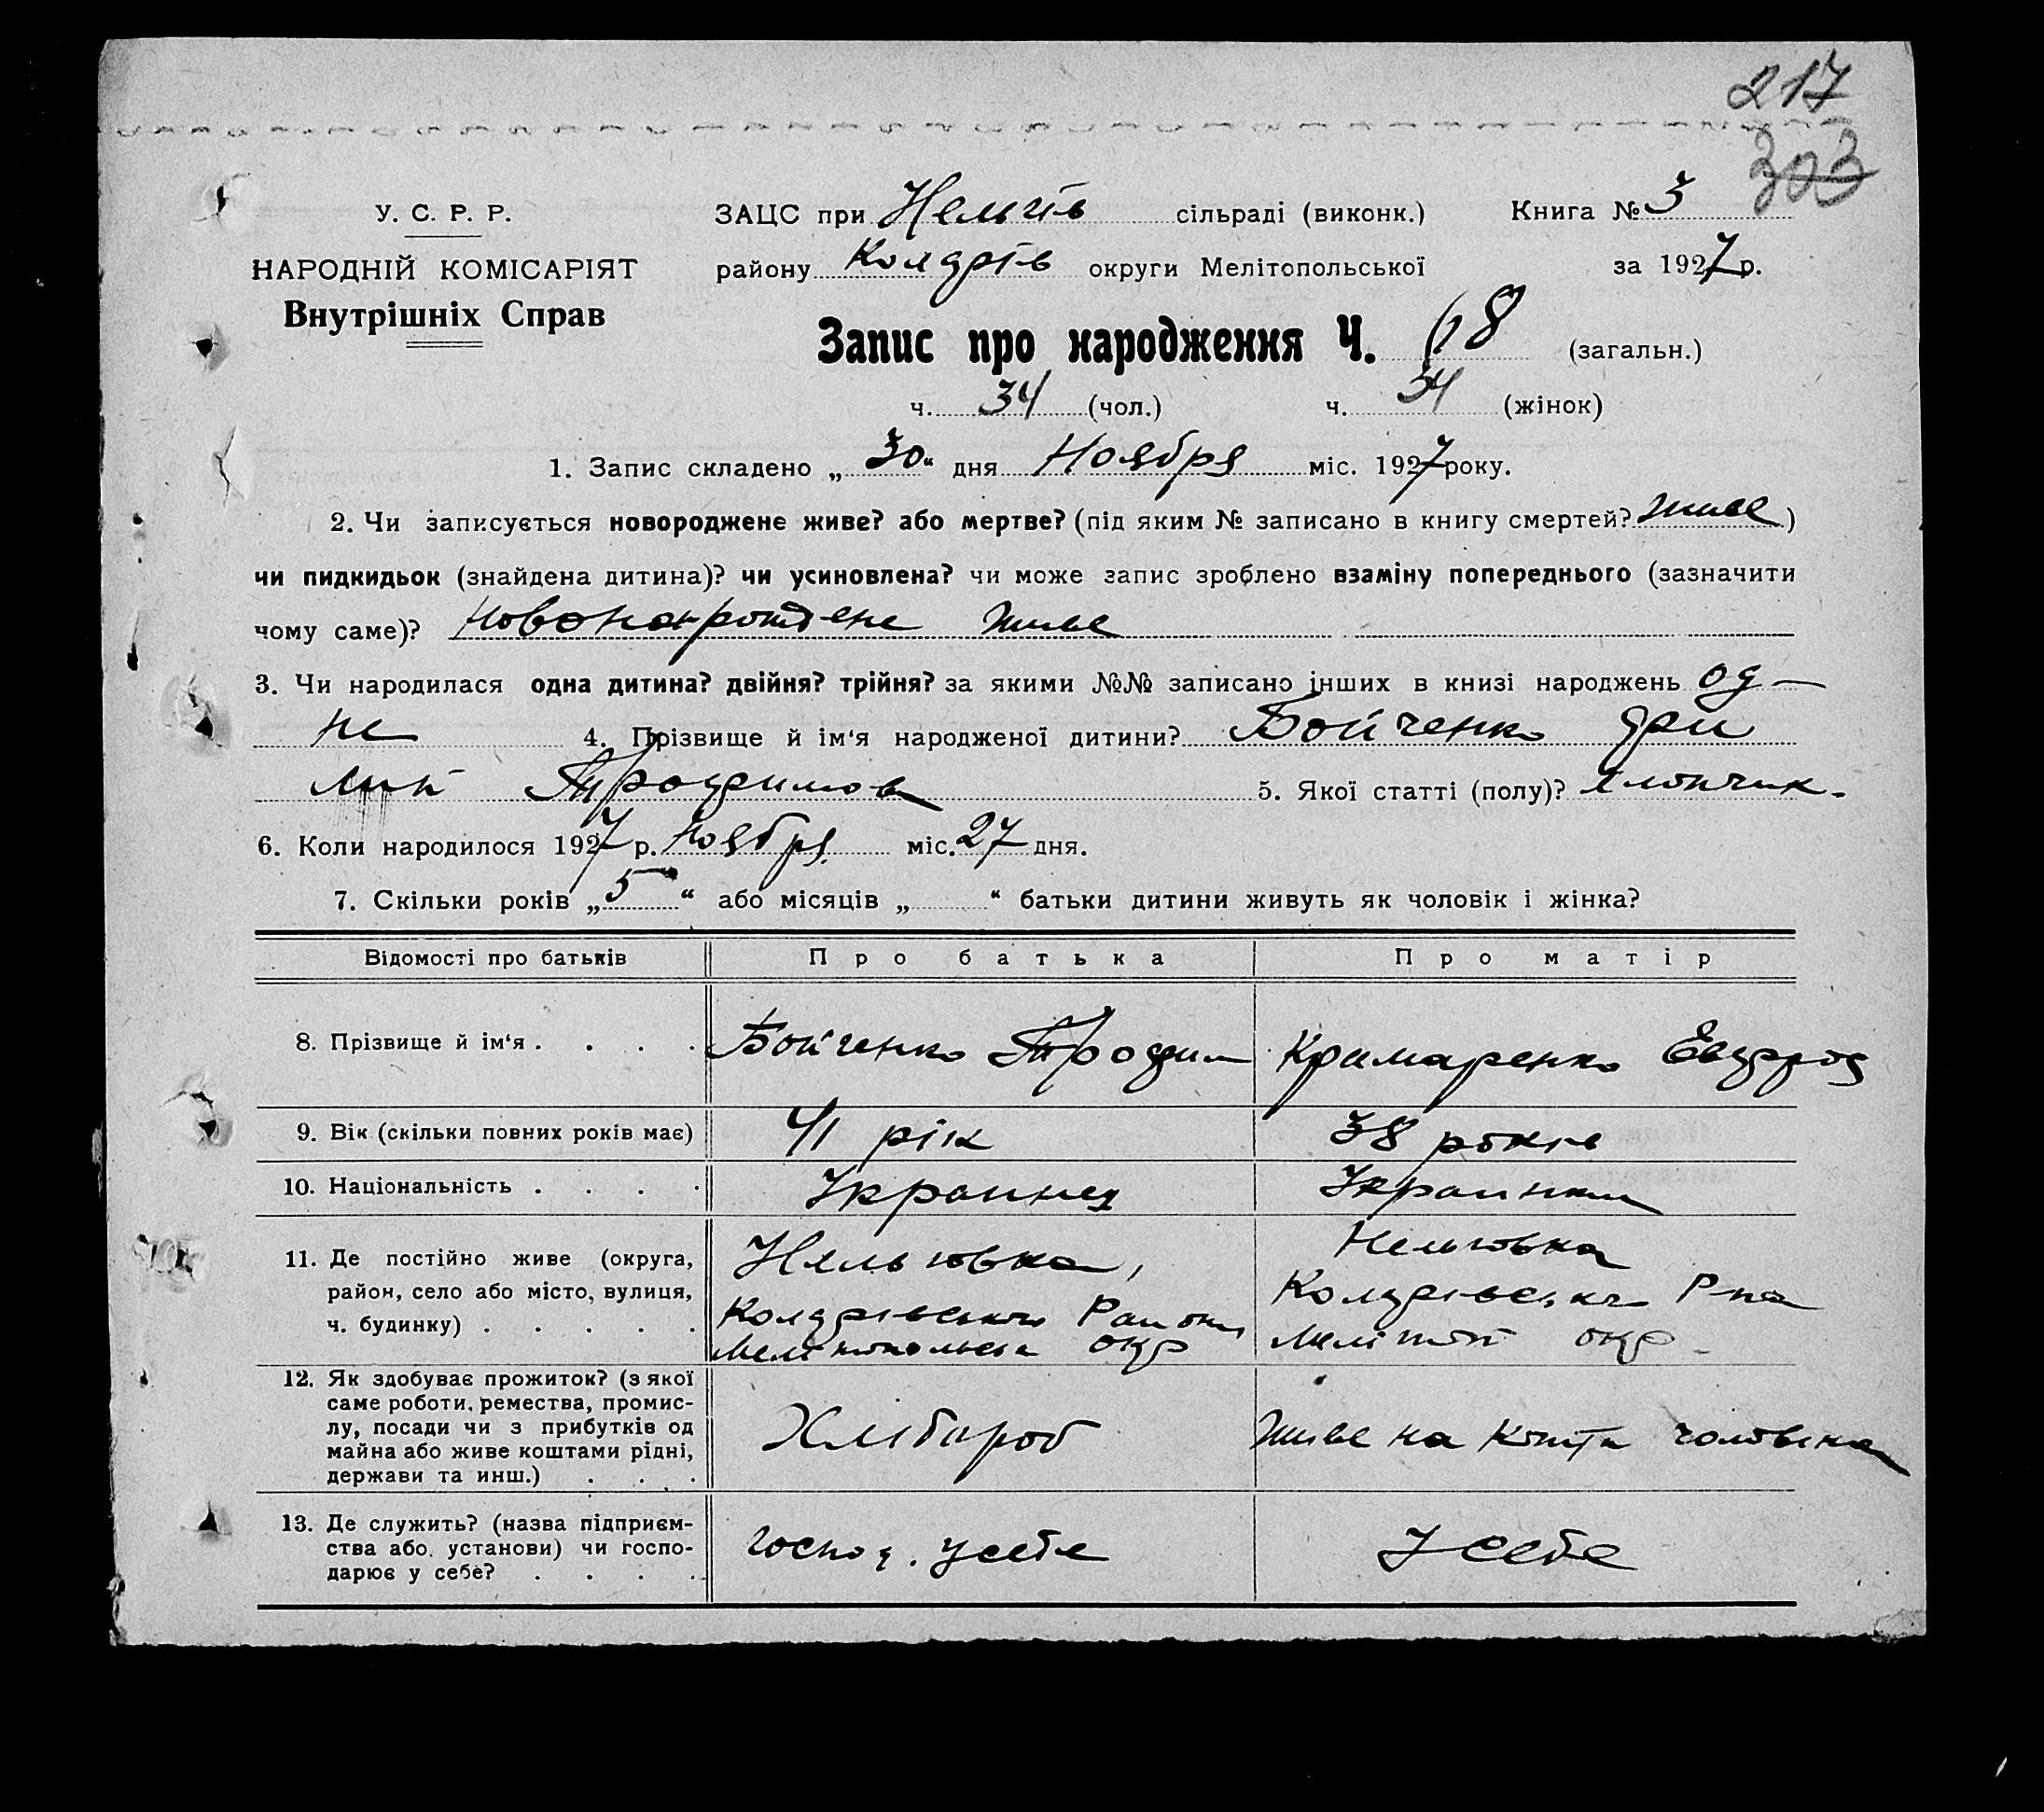 217
303
У. С. Р. Р.
НАРОДНІЙ КОМІСАРІЯТ
Внутрішніх Справ
ЗАЦС при Нельгів сільраді (виконк.) Книга № 3
району округи Мелітопольської за 1927 р.
Запис про народження Ч. 68 (загальн.)
ч. 34 (чол.) ч. 34 (жінок)
1. Запис складено „30“ дня Ноября міс. 1927 року.
2. Чи записується новороджене живе? або мертве? (під яким № записано в книгу смертей? живе)
чи пидкидьок (знайдена дитина)? чи усиновлена? чи може запис зроблено взаміну попереднього (зазначити
чому саме)? живе
3. Чи народилася одна дитина? двійня? трійня? за якими №№ записано інших в книзі народжень од-
не 4. Прізвище й ім‘я народженої дитини? Бойченко
Трофимов 5. Якої статті (полу)? хлопчик.
6. Коли народилося 1927 р. Ноября міс. 27 дня.
7. Скільки років „5“ або місяців „ “ батьки дитини живуть як чоловік і жінка?
Відомості про батьків Про батька Про матір
8. Прізвище й ім‘я . . . . Бойченко Трофим Крамаренко
9. Вік (скільки повних років має) 41 рік 38 років
10. Національність . . . . Украинец Украинка
11. Де постійно живе (округа, Нельговка, Нельговка
район, село або місто, вулиця, Району Р-на
ч. будинку) . . . . . окр окр
12. Як здобуває прожиток? (з якої
саме роботи, ремества, промис-
лу, посади чи з прибутків од Хлібороб Живе на кошти чоловіка
майна або живе коштами рідні,
держави та инш.) . . .
13. Де служить? (назва підприєм-
ства або установи) чи госпо- госпо . у себе У себе
дарює у себе? . . . .